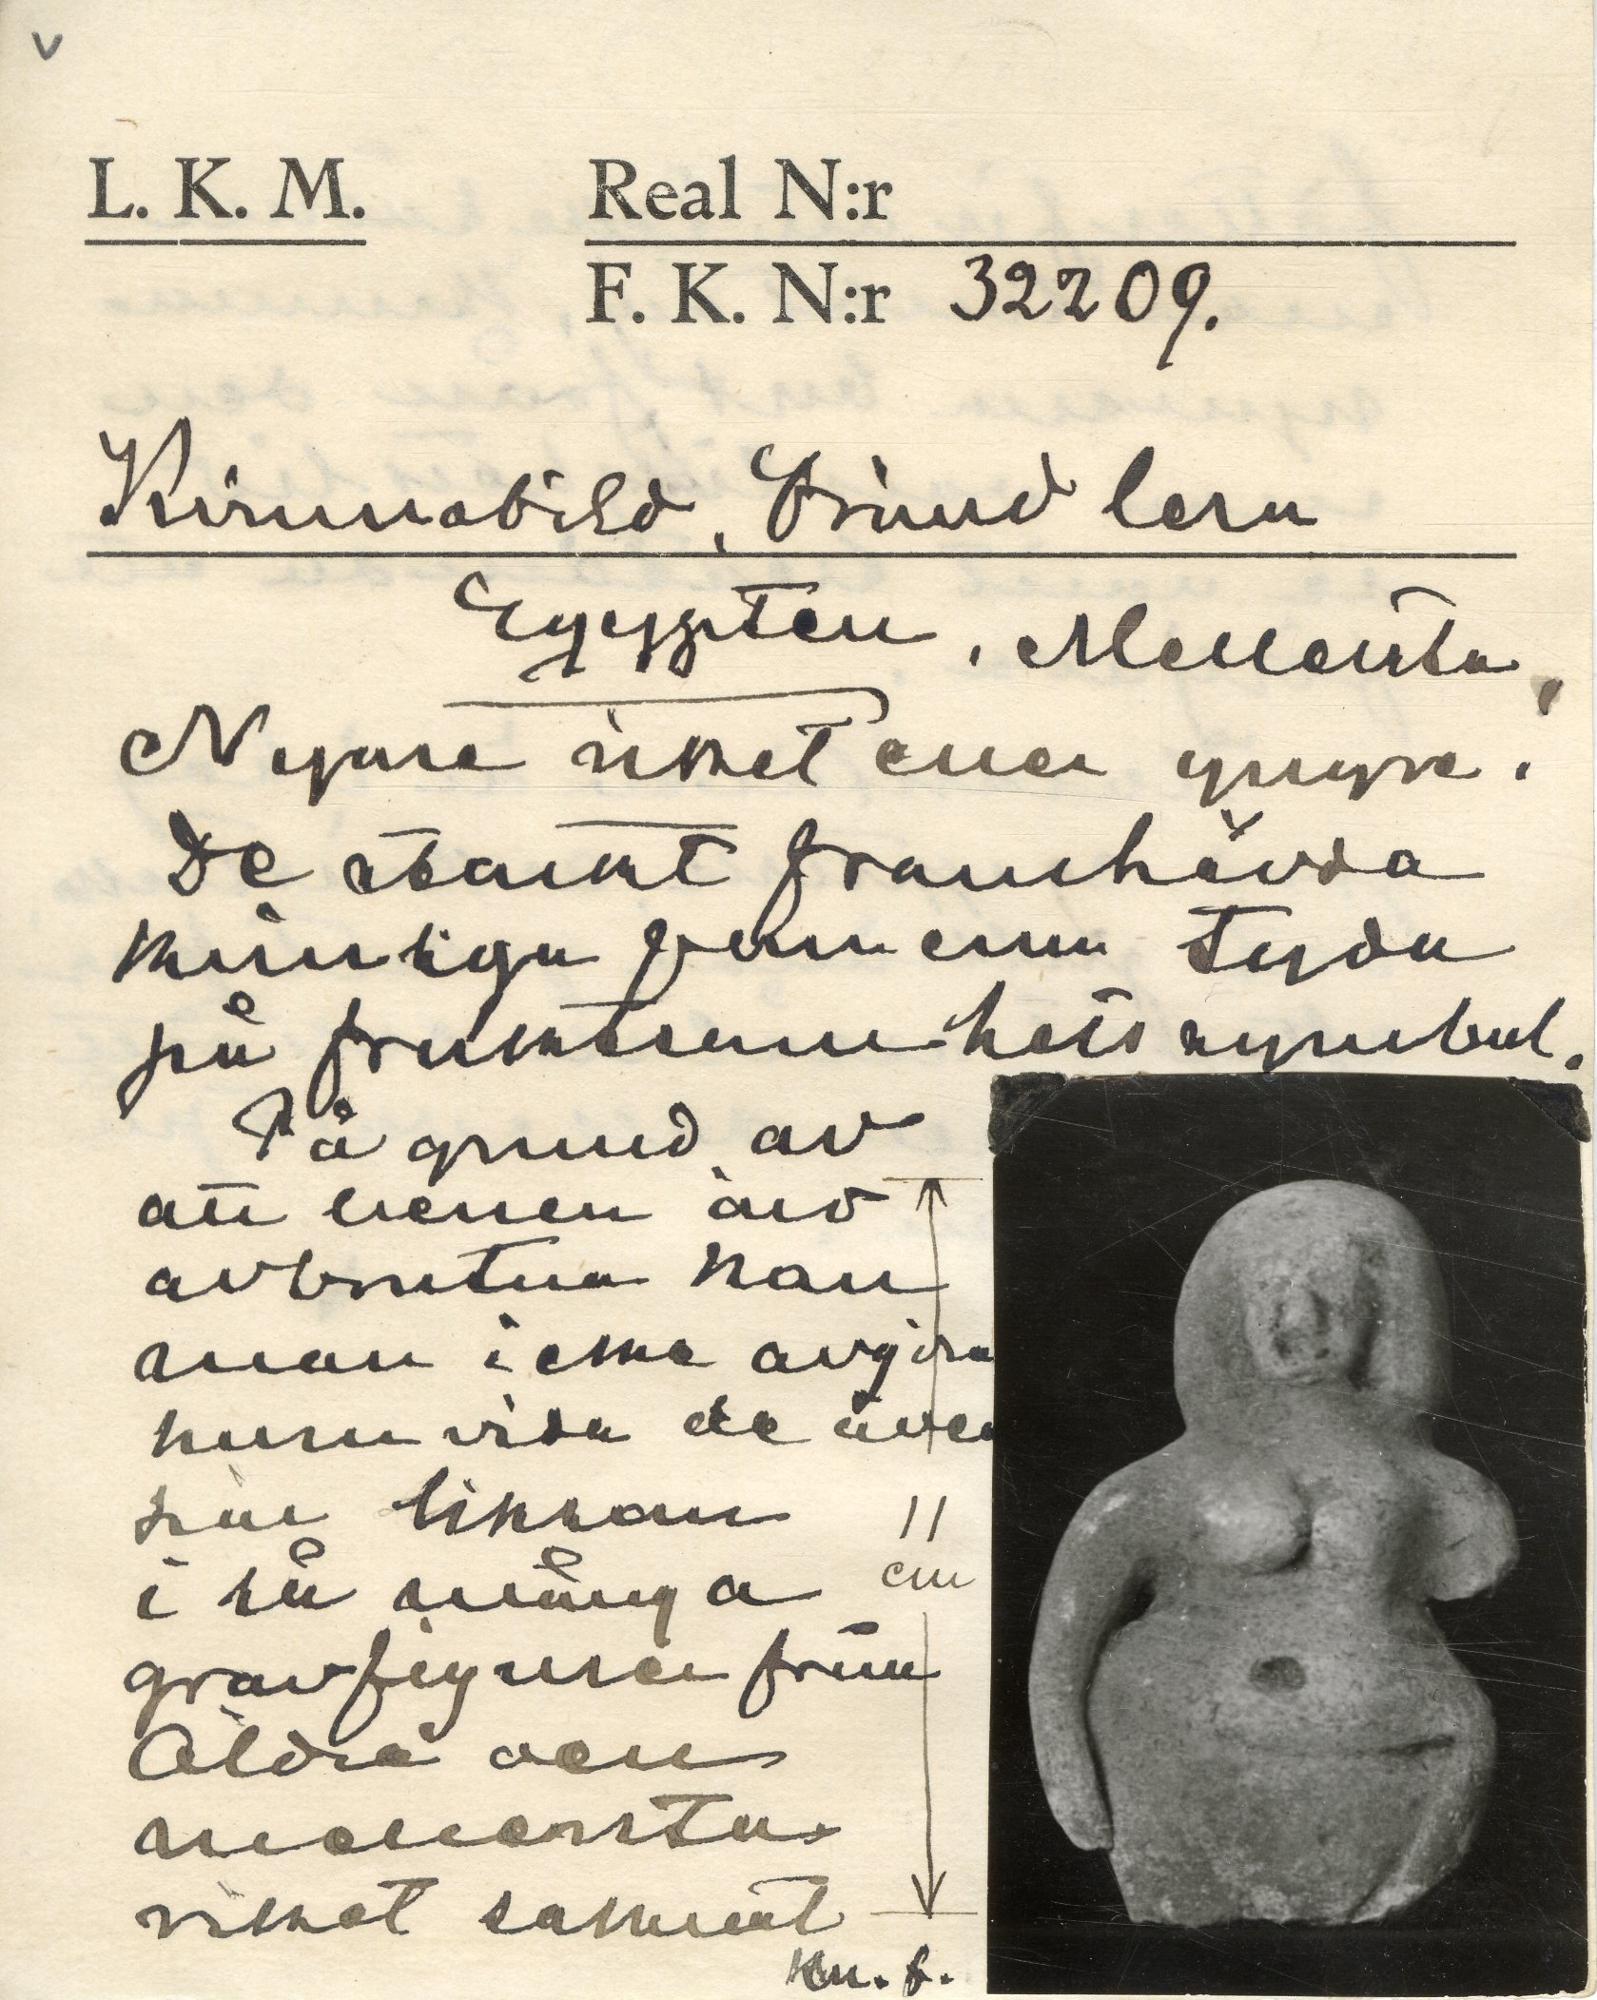 v
L. K. M.
Real N:r
F. K. N:r 32209.
Kvinnobild, Bränd lera
Egypten, Mellersta,
Nyare riket eller yngre.
De starkt framhävda
kvinliga formerna tyda
på fruktsamhets symbol.
På grund av
att benen äro
avbrutna kan
man icke avgöra
huruvida de även
här liksom
i så många
gravfigurer från
Äldre och
mellersta
riket saknat
11
cm